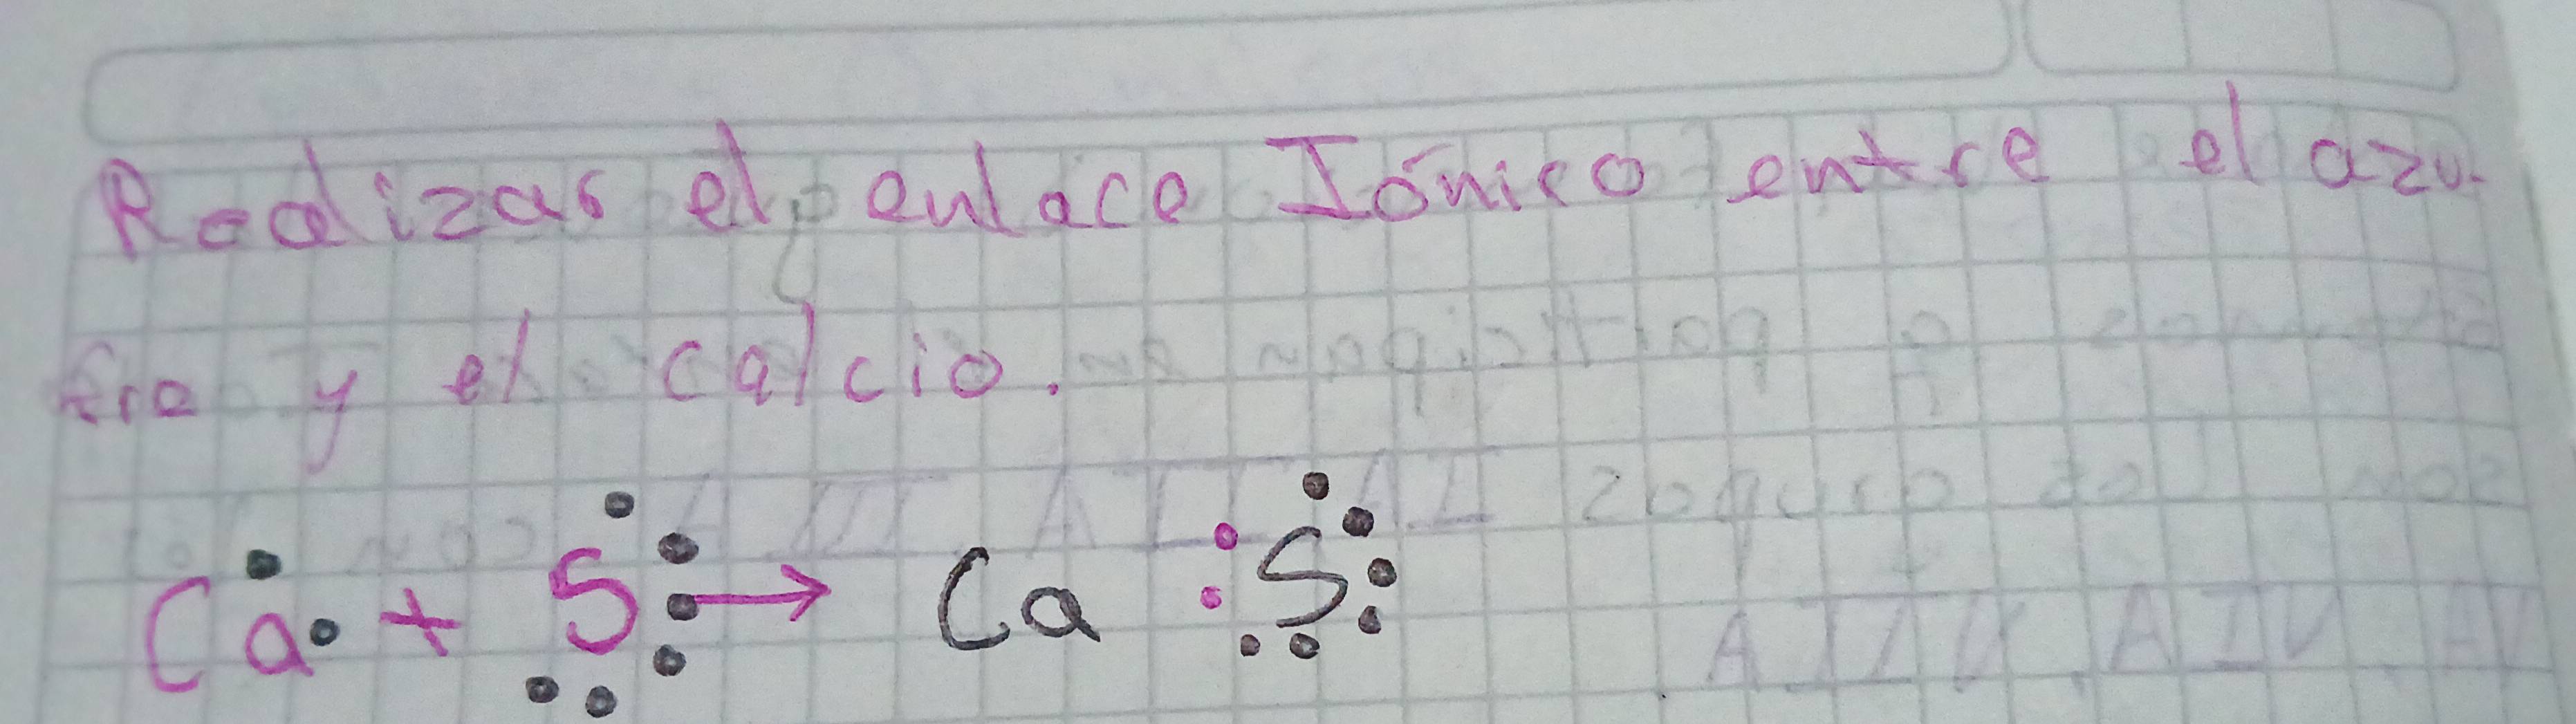 Realizar el enlace Iónico entre el azu-
fre y el calcio.
Ca + S → Ca S